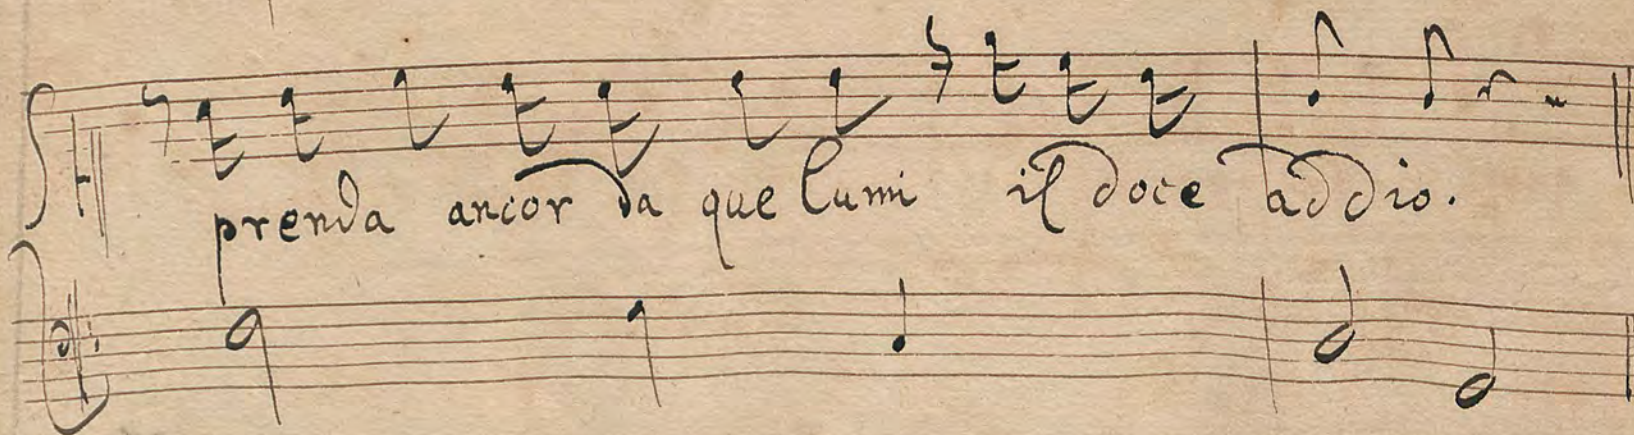 prenda ancor da que lumi il doce addio.